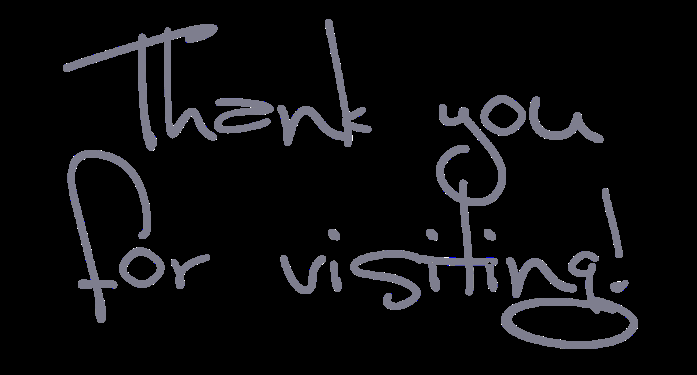 Thank you
for visiting!